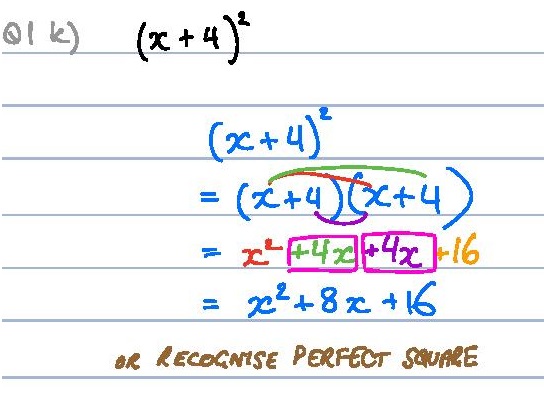 Q1 k) (x + 4)²
(x + 4)²
= (x + 4)(x + 4)
= x² + 4x + 4x + 16
= x² + 8x + 16
OR RECOGNISE PERFECT SQUARE